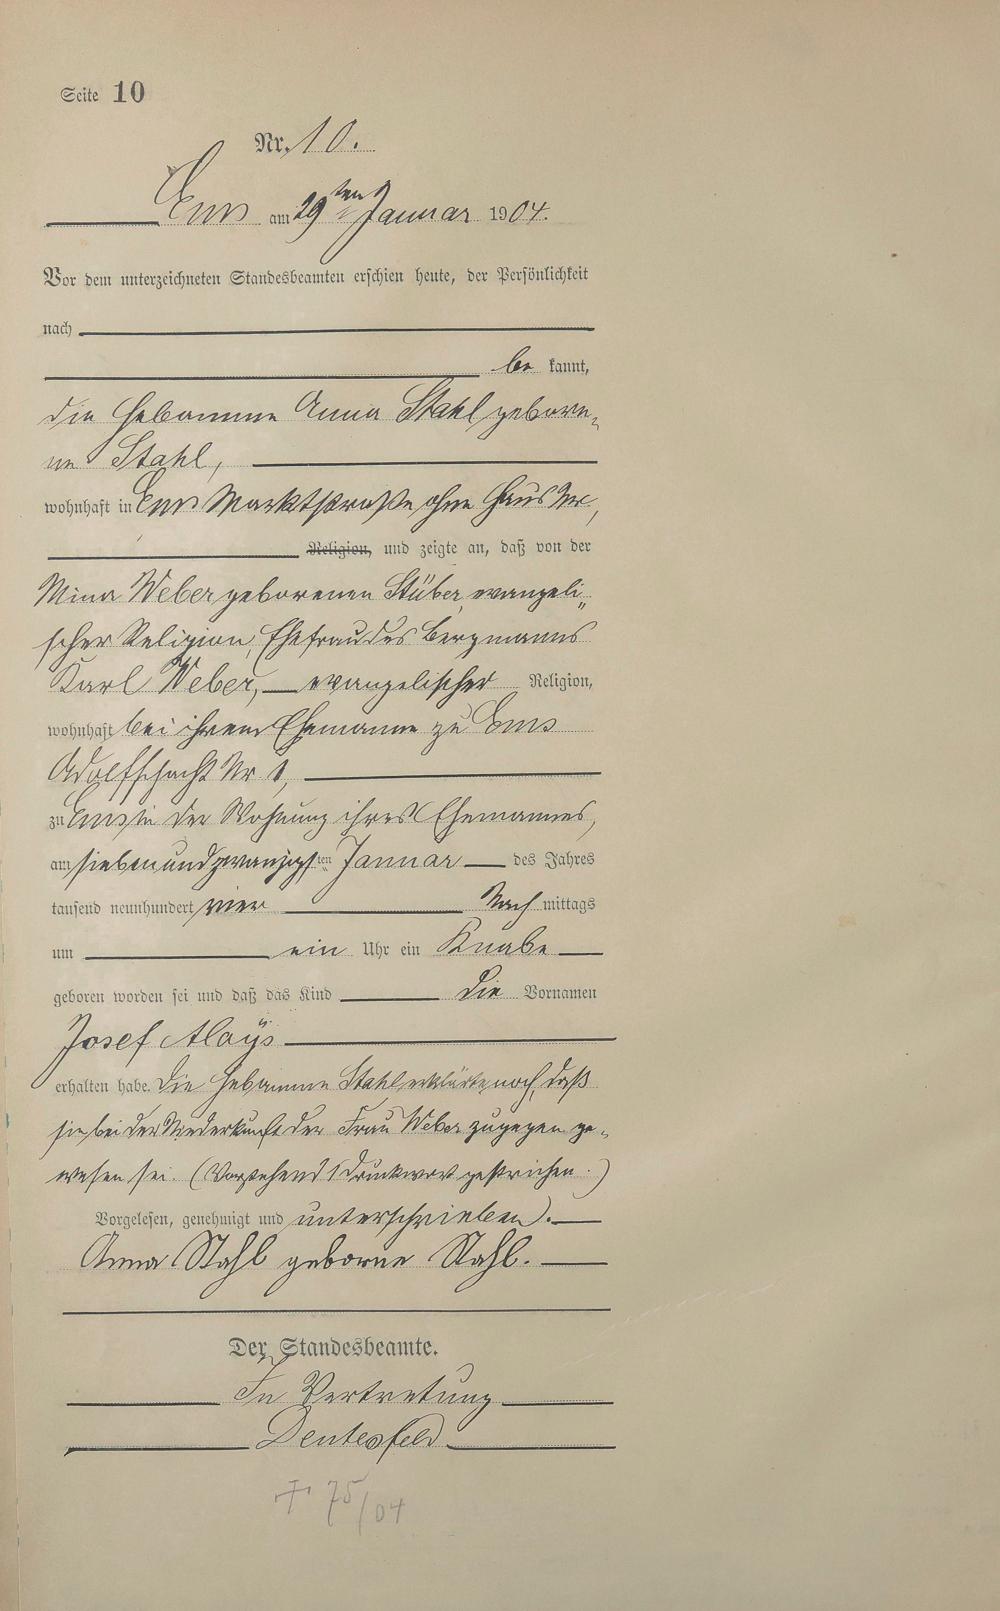 Seite 10
Nr. 10.
Ems am 29ten Januar 1904.
Vor dem unterzeichneten Standesbeamten erschien heute, der Persönlichkeit
nach
be kannt,
die Hebamme Anna Stahl gebore-
ne Stahl,
wohnhaft in Ems Marktstraße ohne Haus Nr.,
Religion, und zeigte an, daß von der
Mina Weber geborenen Stüber, evangeli-
scher Religion, Ehefrau des Bergmanns
Karl Weber, evangelischer Religion,
wohnhaft bei ihrem Ehemanne zu Ems
Adolfschacht Nr 1,
zu Ems in der Wohnung ihres Ehemannes,
am siebenundzwanzigsten Januar des Jahres
tausend neunhundert vier Nach mittags
um ein Uhr ein Knabe
geboren worden sei und daß das Kind die Vornamen
Josef Aloÿs
erhalten habe. Die Hebamme Stahl erklärte noch, daß
sie bei der Niederkunft der Frau Weber zugegen ge-
wesen sei. (Vorstehend 1 Druckwort gestrichen.)
Vorgelesen, genehmigt und unterschrieben.
Anna Stahl geborne Stahl.
Der Standesbeamte.
In Vertretung
+ 75/04